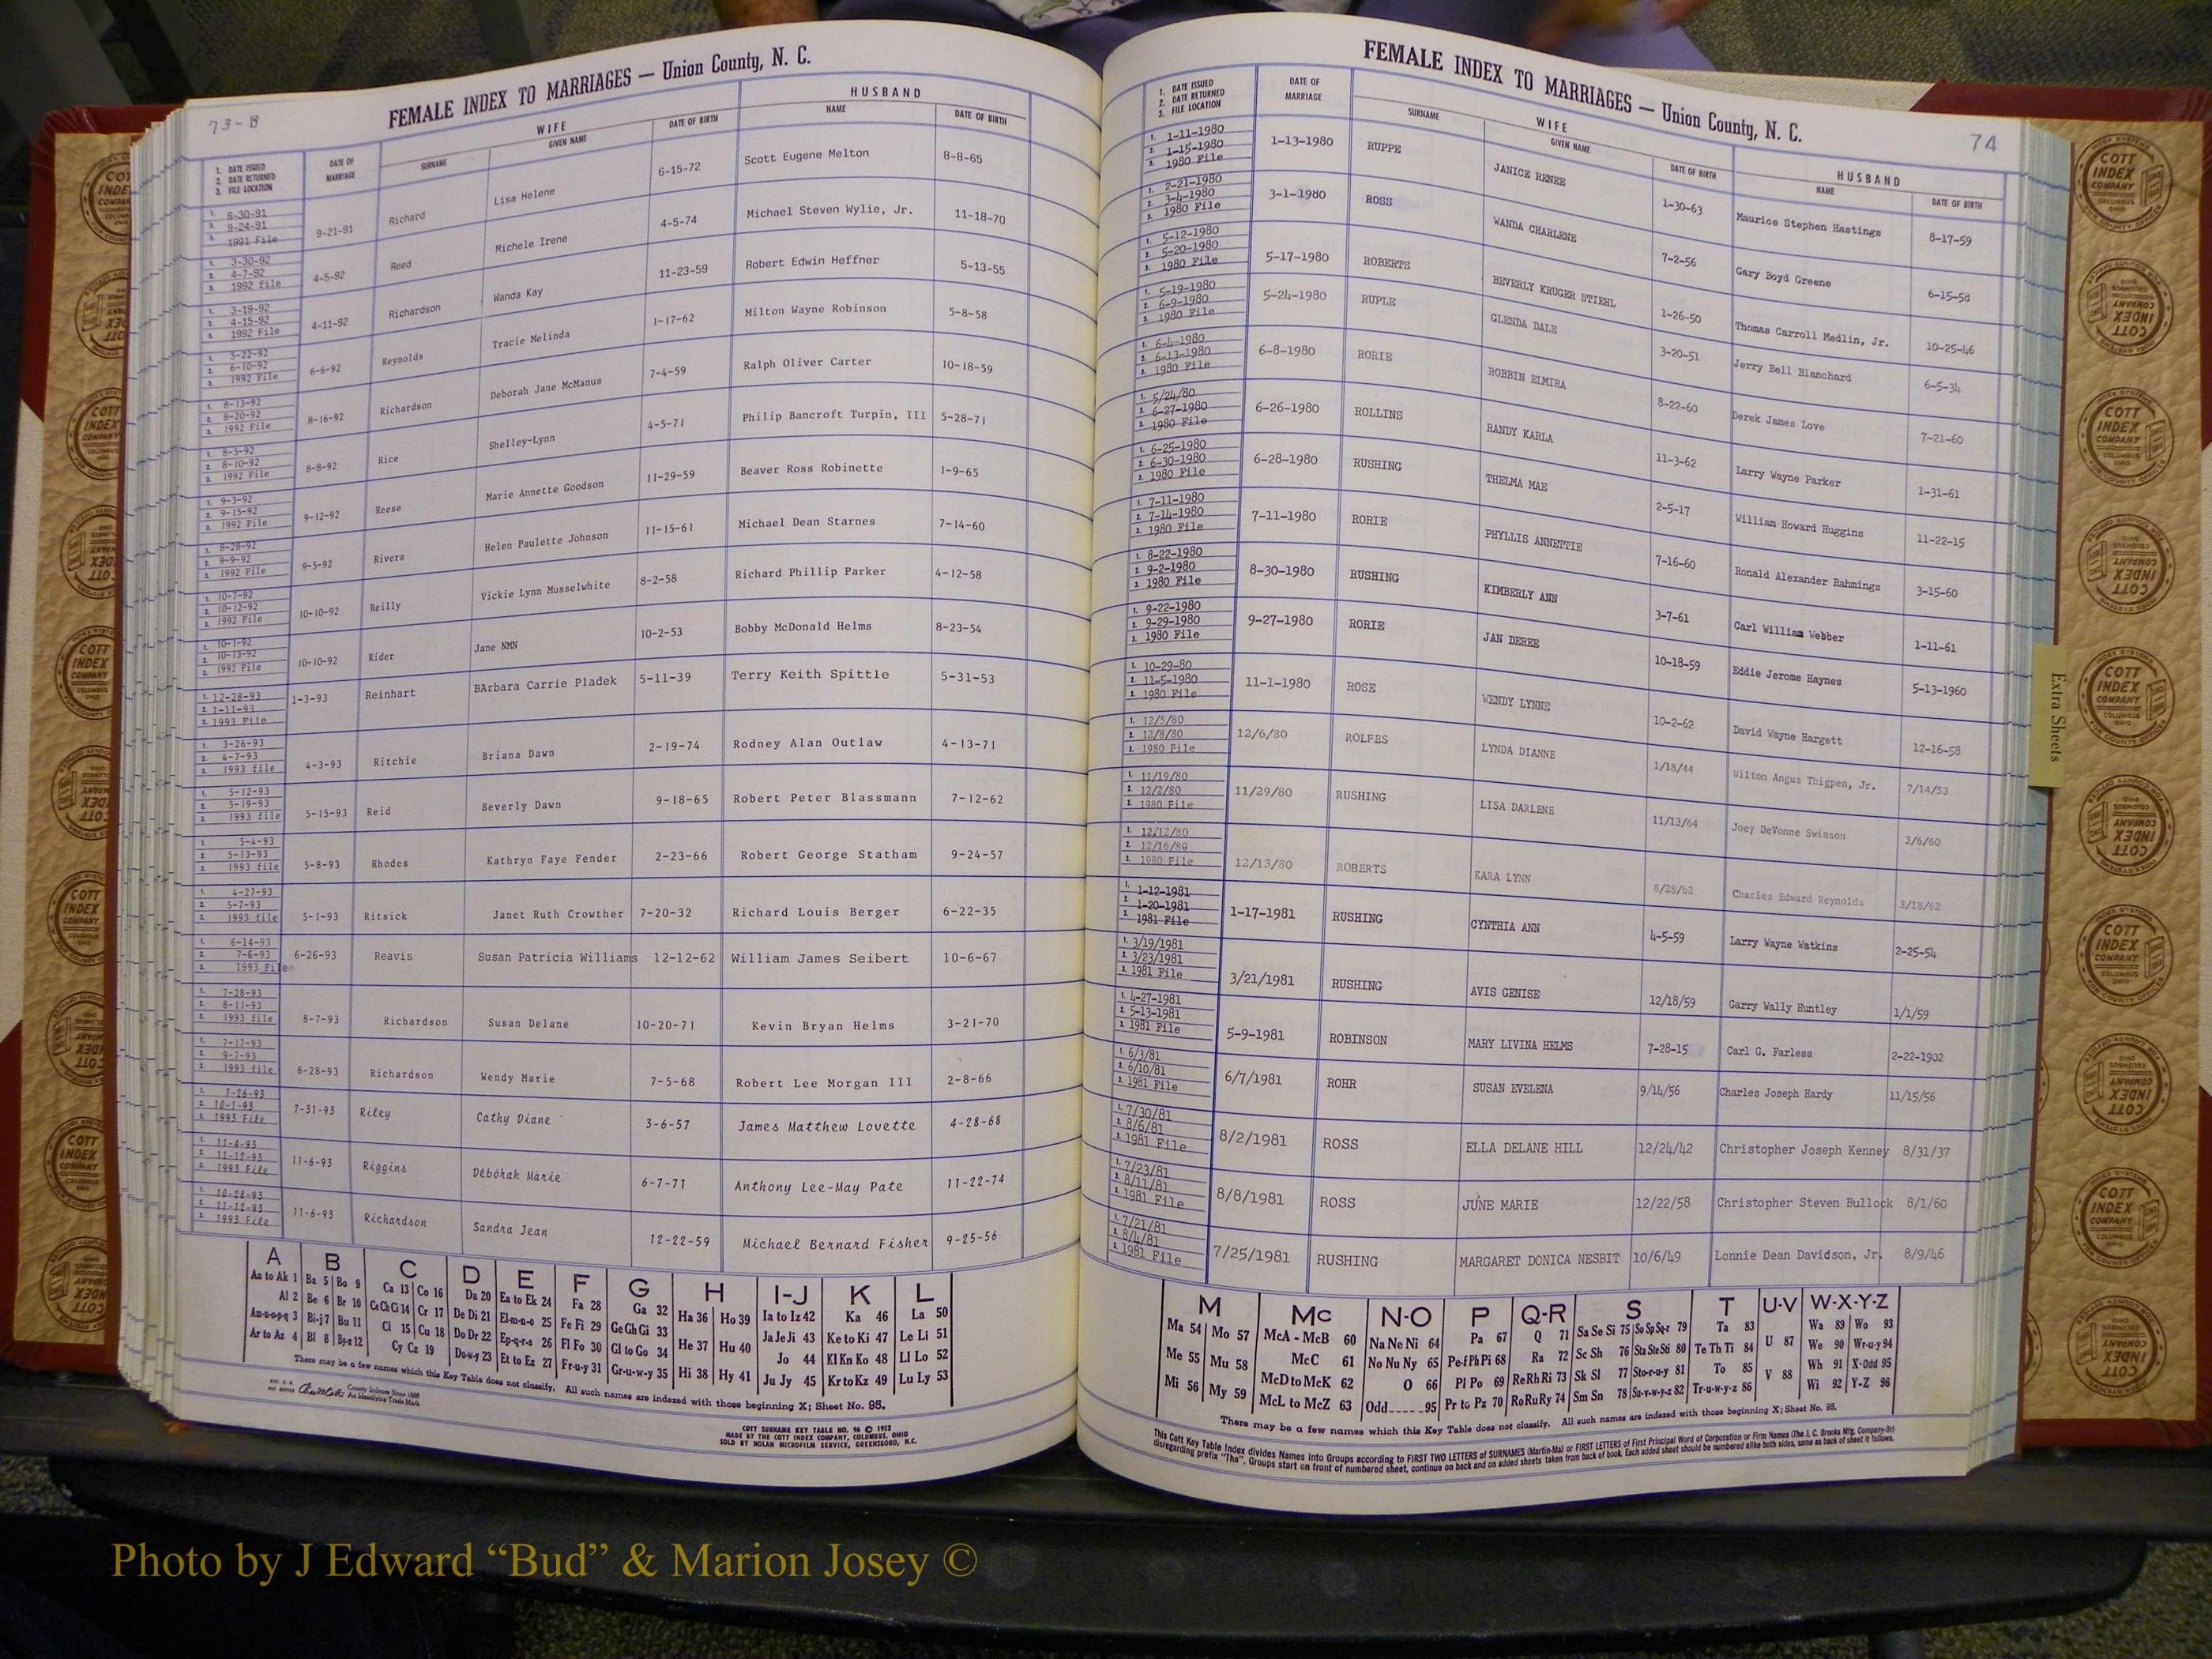 73-B
FEMALE INDEX TO MARRIAGES — Union County, N. C.
WIFE
HUSBAND
1. DATE ISSUED
2. DATE RETURNED
3. FILE LOCATION
DATE OF MARRIAGE
SURNAME
GIVEN NAME
DATE OF BIRTH
NAME
DATE OF BIRTH
1. 8-30-91 2. 9-24-91 3. 1991 File 9-21-91 Richard Lisa Helene 6-15-72 Scott Eugene Melton 8-8-65
1. 3-30-92 2. 4-7-92 3. 1992 file 4-5-92 Reed Michele Irene 4-5-74 Michael Steven Wylie, Jr. 11-18-70
1. 3-19-92 2. 4-15-92 3. 1992 File 4-11-92 Richardson Wanda Kay 11-23-59 Robert Edwin Heffner 5-13-55
1. 5-22-92 2. 6-10-92 3. 1992 File 6-6-92 Reynolds Tracie Melinda 1-17-62 Milton Wayne Robinson 5-8-58
1. 8-13-92 2. 8-20-92 3. 1992 File 8-16-92 Richardson Deborah Jane McManus 7-4-59 Ralph Oliver Carter 10-18-59
1. 8-5-92 2. 8-10-92 3. 1992 File 8-8-92 Rice Shelley-Lynn 4-5-71 Philip Bancroft Turpin, III 5-28-71
1. 9-3-92 2. 9-15-92 3. 1992 File 9-12-92 Reese Marie Annette Goodson 11-29-59 Beaver Ross Robinette 1-9-65
1. 8-28-92 2. 9-9-92 3. 1992 File 9-5-92 Rivers Helen Paulette Johnson 11-15-61 Michael Dean Starnes 7-14-60
1. 10-7-92 2. 10-12-92 3. 1992 File 10-10-92 Reilly Vickie Lynn Musselwhite 8-2-58 Richard Phillip Parker 4-12-58
1. 10-1-92 2. 10-13-92 3. 1992 File 10-10-92 Rider Jane NMN 10-2-53 Bobby McDonald Helms 8-23-54
1. 12-28-93 2. 1-11-93 3. 1993 File 1-3-93 Reinhart BArbara Carrie Pladek 5-11-39 Terry Keith Spittle 5-31-53
1. 3-26-93 2. 4-7-93 3. 1993 file 4-3-93 Ritchie Briana Dawn 2-19-74 Rodney Alan Outlaw 4-13-71
1. 5-12-93 2. 5-19-93 3. 1993 file 5-15-93 Reid Beverly Dawn 9-18-65 Robert Peter Blassmann 7-12-62
1. 5-4-93 2. 5-13-93 3. 1993 file 5-8-93 Rhodes Kathryn Faye Fender 2-23-66 Robert George Statham 9-24-57
1. 4-27-93 2. 5-7-93 3. 1993 file 5-1-93 Ritsick Janet Ruth Crowther 7-20-32 Richard Louis Berger 6-22-35
1. 6-14-93 2. 7-6-93 3. 1993 File 6-26-93 Reavis Susan Patricia Williams 12-12-62 William James Seibert 10-6-67
1. 7-28-93 2. 8-11-93 3. 1993 file 8-7-93 Richardson Susan Delane 10-20-71 Kevin Bryan Helms 3-21-70
1. 7-17-93 2. 9-7-93 3. 1993 file 8-28-93 Richardson Wendy Marie 7-5-68 Robert Lee Morgan III 2-8-66
1. 7-26-93 2. 10-1-93 3. 1993 File 7-31-93 Riley Cathy Diane 3-6-57 James Matthew Lovette 4-28-68
1. 11-4-93 2. 11-12-93 3. 1993 File 11-6-93 Riggins Deborah Marie 6-7-71 Anthony Lee-May Pate 11-22-74
1. 10-28-93 2. 11-12-93 3. 1993 File 11-6-93 Richardson Sandra Jean 12-22-59 Michael Bernard Fisher 9-25-56
A B C D E F G H I-J K L
Aa to Ak 1 Ba 5 Bo 9 Ca 13 Co 16 Da 20 Ea to Ek 24 Fa 28 Ga 32 Ha 36 Ho 39 Ia to Iz 42 Ka 46 La 50
Al 2 Be 6 Br 10 Ce Ch Ci 14 Cr 17 De Di 21 El-m-n-o 25 Fe Fi 29 Ge Gh Gi 33 He 37 Hu 40 Ja Je Ji 43 Ke to Ki 47 Le Li 51
Am-n-o-p-q 3 Bi-j 7 Bu 11 Cl 15 Cu 18 Do Dr 22 Ep-q-r-s 26 Fl Fo 30 Gl to Go 34 Hi 38 Hy 41 Jo 44 Kl Kn Ko 48 Ll Lo 52
Ar to Az 4 Bl 8 By-z 12 Cy Cz 19 Du-w-y 23 Et to Ez 27 Fr-u-y 31 Gr-u-w-y 35 Ju Jy 45 Kr to Kz 49 Lu Ly 53
There may be a few names which this Key Table does not classify. All such names are indexed with those beginning X; Sheet No. 95.
County Indexes Since 1888
An Identifying Trade Mark
COTT SURNAME KEY TABLE NO. 96 © 1952
MADE BY THE COTT INDEX COMPANY, COLUMBUS, OHIO
SOLD BY NOLAN MICROFILM SERVICE, GREENSBORO, N.C.
FEMALE INDEX TO MARRIAGES — Union County, N. C.
74
1. DATE ISSUED
2. DATE RETURNED
3. FILE LOCATION
DATE OF MARRIAGE
WIFE
SURNAME
GIVEN NAME
DATE OF BIRTH
HUSBAND
NAME
DATE OF BIRTH
1. 1-11-1980 2. 1-15-1980 3. 1980 File 1-13-1980 RUPPE JANICE RENEE 1-30-63 Maurice Stephen Hastings 8-17-59
1. 2-21-1980 2. 3-4-1980 3. 1980 File 3-1-1980 ROSS WANDA CHARLENE 7-2-56 Gary Boyd Greene 6-15-58
1. 5-12-1980 2. 5-20-1980 3. 1980 File 5-17-1980 ROBERTS BEVERLY KRUGER STIEHL 1-26-50 Thomas Carroll Medlin, Jr. 10-25-46
1. 5-19-1980 2. 6-9-1980 3. 1980 File 5-24-1980 RUPLE GLENDA DALE 3-20-51 Jerry Bell Blanchard 6-5-34
1. 6-4-1980 2. 6-13-1980 3. 1980 File 6-8-1980 RORIE ROBBIN ELMIRA 8-22-60 Derek James Love 7-21-60
1. 5/24/80 2. 6-27-1980 3. 1980 File 6-26-1980 ROLLINS RANDY KARLA 11-3-62 Larry Wayne Parker 1-31-61
1. 6-25-1980 2. 6-30-1980 3. 1980 File 6-28-1980 RUSHING THELMA MAE 2-5-17 William Howard Huggins 11-22-15
1. 7-11-1980 2. 7-14-1980 3. 1980 File 7-11-1980 RORIE PHYLLIS ANNETTIE 7-16-60 Ronald Alexander Rahmings 3-15-60
1. 8-22-1980 2. 9-2-1980 3. 1980 File 8-30-1980 RUSHING KIMBERLY ANN 3-7-61 Carl William Webber 1-11-61
1. 9-22-1980 2. 9-29-1980 3. 1980 File 9-27-1980 RORIE JAN DEREE 10-18-59 Eddie Jerome Haynes 5-13-1960
1. 10-29-80 2. 11-5-1980 3. 1980 File 11-1-1980 ROSE WENDY LYNNE 10-2-62 David Wayne Hargett 12-16-58
1. 12/5/80 2. 12/8/80 3. 1980 File 12/6/80 ROLFES LYNDA DIANNE 1/18/44 Wilton Angus Thigpen, Jr. 7/14/53
1. 11/19/80 2. 12/2/80 3. 1980 File 11/29/80 RUSHING LISA DARLENE 11/13/64 Joey DeVonne Swinson 3/6/60
1. 12/12/80 2. 12/16/80 3. 1980 File 12/13/80 ROBERTS KARA LYNN 8/28/62 Charles Edward Reynolds 3/18/62
1. 1-12-1981 2. 1-20-1981 3. 1981 File 1-17-1981 RUSHING CYNTHIA ANN 4-5-59 Larry Wayne Watkins 2-25-54
1. 3/19/1981 2. 3/23/1981 3. 1981 File 3/21/1981 RUSHING AVIS GENISE 12/18/59 Garry Wally Huntley 1/1/59
1. 4-27-1981 2. 5-13-1981 3. 1981 File 5-9-1981 ROBINSON MARY LIVINA HELMS 7-28-15 Carl G. Farless 2-22-1902
1. 6/3/81 2. 6/10/81 3. 1981 File 6/7/1981 ROHR SUSAN EVELENA 9/14/56 Charles Joseph Hardy 11/15/56
1. 7/30/81 2. 8/6/81 3. 1981 File 8/2/1981 ROSS ELLA DELANE HILL 12/24/42 Christopher Joseph Kenney 8/31/37
1. 7/23/81 2. 8/11/81 3. 1981 File 8/8/1981 ROSS JUNE MARIE 12/22/58 Christopher Steven Bullock 8/1/60
1. 7/21/81 2. 8/4/81 3. 1981 File 7/25/1981 RUSHING MARGARET DONICA NESBIT 10/6/49 Lonnie Dean Davidson, Jr. 8/9/46
M Mc N-O P Q-R S T U-V W-X-Y-Z
Ma 54 Mo 57 McA - McB 60 Na Ne Ni 64 Pa 67 Q 71 Sa Se Si 75 So Sp Sq-r 79 Ta 83 U 87 Wa 89 Wo 93
Me 55 Mu 58 McC 61 No Nu Ny 65 Pe-f Ph Pi 68 Ra 72 Sc Sh 76 Sta Ste Sti 80 Te Th Ti 84 We 90 Wr-u-y 94
Mi 56 My 59 McD to McK 62 O 66 Pl Po 69 Re Rh Ri 73 Sk Sl 77 Sto-r-u-y 81 To 85 V 88 Wh 91 X-Odd 95
McL to McZ 63 Odd 95 Pr to Pz 70 Ro Ru Ry 74 Sm Sn 78 Su-v-w-y-z 82 Tr-u-w-y-z 86 Wi 92 Y-Z 96
There may be a few names which this Key Table does not classify. All such names are indexed with those beginning X; Sheet No. 95.
This Cott Key Table Index divides Names into Groups according to FIRST TWO LETTERS of SURNAMES (Martin-Ma) or FIRST LETTERS of First Principal Word of Corporation or Firm Names (The J. C. Brooks Mfg. Company-Br)
disregarding prefix "The". Groups start on front of numbered sheet, continue on back and on added sheets taken from back of book. Each added sheet should be numbered alike both sides, same as back of sheet it follows.
Extra Sheets
COTT INDEX COMPANY COLUMBUS OHIO
Photo by J Edward “Bud” & Marion Josey ©